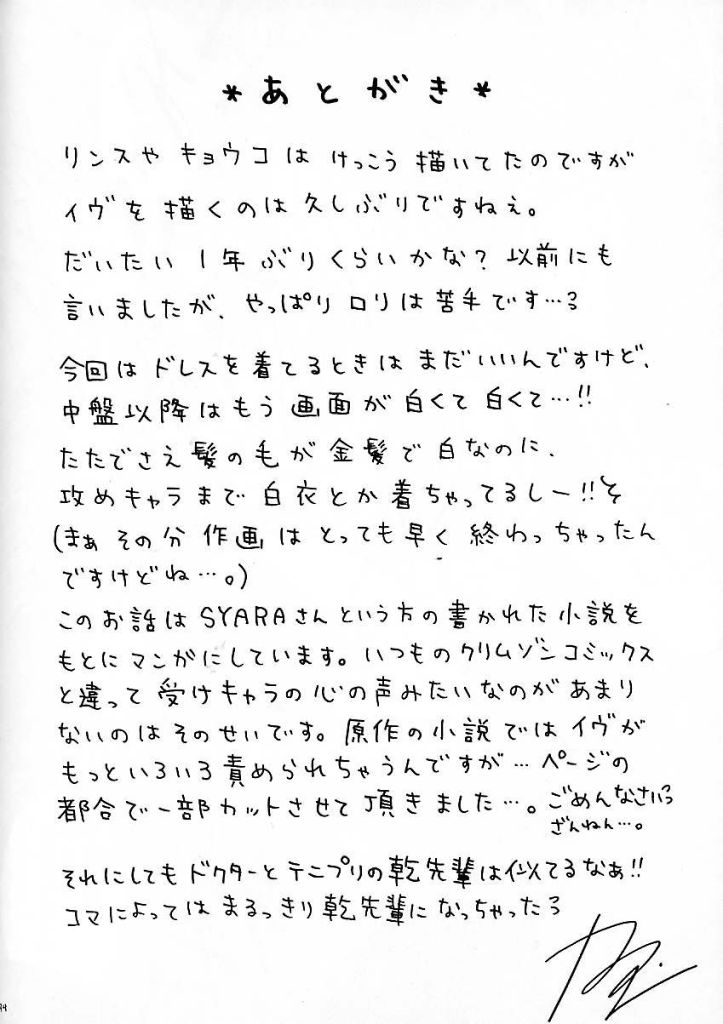 *あとがき*
リンスや キョウコは けっこう 描いてたのですが
イヴを 描くのは 久しぶりですねぇ。
だいたい 1年ぶりくらいかな？以前にも
言いましたが、やっぱり ロリは 苦手です…
今回は ドレスを着てるときは まだいいんですけど、
中盤以降はもう 画面が 白くて 白くて…!!
たたでさえ 髪の毛が 金髪で 白なのに、
攻めキャラまで 白衣とか着ちゃってるしー!!
(まぁ その分 作画は とっても早く 終わっちゃったん
ですけどね…。)
このお話は SYARAさんという方の書かれた小説を
もとにマンがにしています。いつものクリムゾンコミックス
と違って 受けキャラの心の声みたいなのがあまり
ないのは そのせいです。原作の小説ではイヴが
もっといろいろ責められちゃうんですが… ページの
都合で一部カットさせて 頂きました…。ごめんなさいっ
ざんねん…。
それにしても ドクターと テニプリの乾先輩は似てるなぁ!!
コマによっては まるっきり 乾先輩に なっちゃった